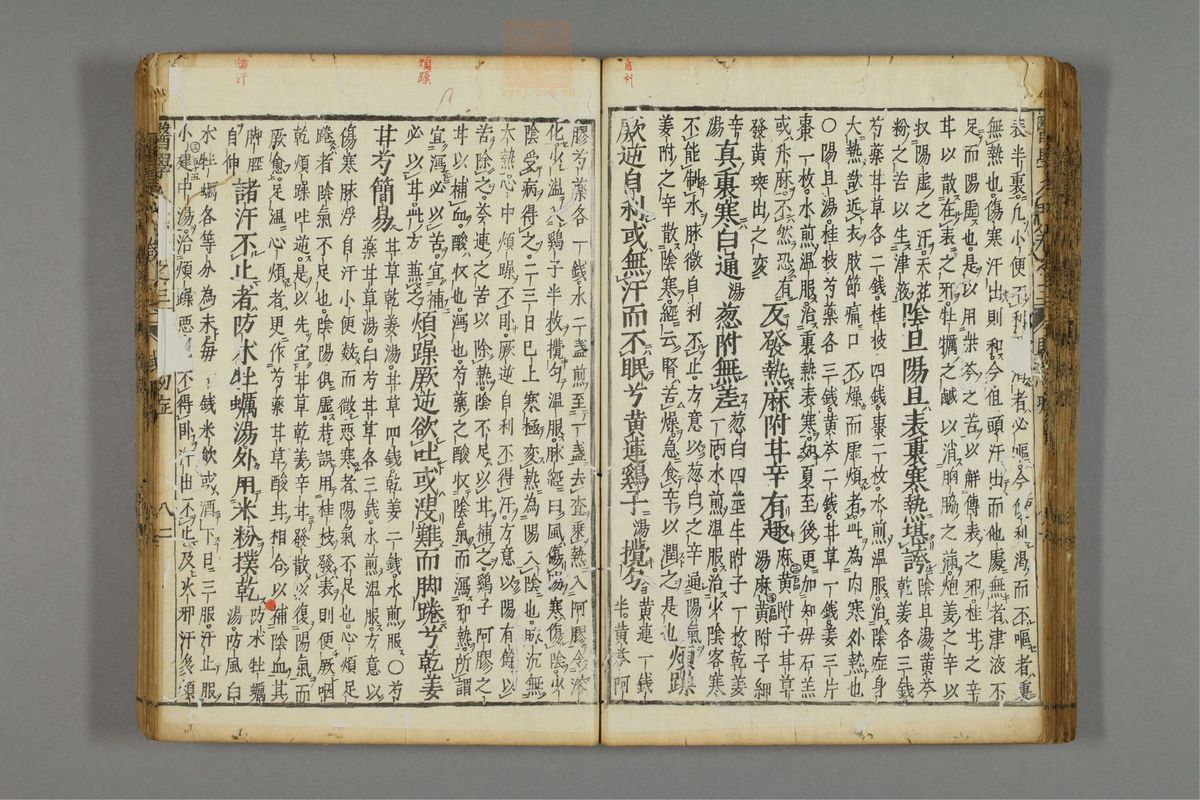 自利
表半裏凡小便不利者必嘔今小便利渴而不嘔者裏
無熱也傷寒汗出則和今但頭汗出而他處無者津液不
足而陽虛也是以用柴芩之苦以解傳表之邪桂甘之辛
甘以散在表之邪牡蠣之鹹以消胸脇之滿炮姜之辛以
収陽虛之汗天花粉之苦以生津液陰旦陽旦表裏寒熱堪誇陰旦湯黃芩乾姜各三錢
芍藥甘草各二錢桂枝四錢棗二枚水煎溫服治陰症身
大熱欲近衣肢節痛口不燥而虛煩者此為內寒外熱也
○陽旦湯桂枝芍藥各三錢黃芩二錢甘草一錢姜三片
棗一枚水煎溫服治裏熱表寒如夏至後更加知母石羔
或升麻不然恐有發黃斑出之變反發熱麻附甘辛有趣麻黃附子甘草湯麻黃附子細
辛湯真裏寒白通湯葱附無差葱白四莖生附子一枚乾姜一兩水煎溫服治少陰客寒
不能制水脉微自利不止方意以葱白之辛通陽氣
姜附之辛散陰寒經云腎苦燥急食辛以潤之是也煩躁
厥逆自利或無汗而不眠兮黃連雞子湯攪勻黃連一錢半黃芩阿
煩躁
諸汗
膠芍藥各一錢水二盞煎至一盞去查乘熱入阿膠令溶
化少溫入雞子半枚攪勻溫服脉經曰風傷陽寒傷陰少
陰受病得之二三日已上寒極變熱為陽入陰也脉沉無
大熱心中煩躁不卧厥逆自利不得汗方意以陽有餘以
苦除之芩連之苦以除熱陰不足以甘補之雞子阿膠之
甘以補血酸収也瀉也芍藥之酸収陰氣而瀉邪熱所謂
宜瀉必以苦宜補必以甘此方兼之煩躁厥逆欲吐或溲難而脚踡兮乾姜
甘芍簡易甘草乾姜湯甘草四錢乾姜二錢水煎服○芍藥甘草湯白芍甘草各三錢水煎溫服方意以
傷寒脉浮自汗小便數而微惡寒者陽氣不足也心煩足
踡者陰氣不足也陰陽俱虛若誤用桂枝發表則便厥咽
乾煩躁吐逆是以先宜甘草乾姜辛甘發散以復陽氣而
厥愈足溫心煩者更作芍藥甘草酸甘相合以補陰血其
脚脛自伸諸汗不止者防水牡蠣湯外用米粉撲乾防水牡蠣湯防風白
水牡蠣各等分為末每一錢米飲或酒下日三服汗止服
小建中湯治煩躁惡不得卧汗出不止及火邪汗多須